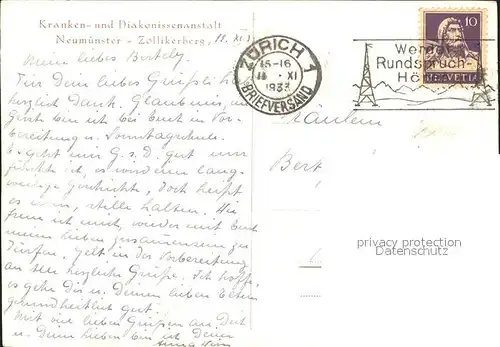 Kranken- und Diakonissenanstalt
Neumünster - Zollikerberg, 11. XI.
Mein liebes Bertely.
Für Dein liebes Grüssli
herzlich Dank. Glaube mir, im
Geiste bin ich bei Euch in Vor-
bereitung u. Sonntagschule.
Es geht mir G. s. D. gut nur
ist, es wird eine lang-
weilige Geschichte, doch heisst
es eben, stille halten.
freue ich mich, wieder mit Euch
meinen lieben zusammen zu
dürfen. Gelt in der Vorbereitung
an alle herzliche Grüsse. Ich hoffe,
es gehe Dir u. Deinen lieben Eltern
gesundheitlich gut.
Mit viel lieben Grüssen an Dich
u. Deine lieben bin ich Deine
Anna
ZÜRICH 1
15-16
11. XI
1933
BRIEFVERSAND
Werdet
Rundspruch-
Hö
10
HELVETIA
Fräulein
Bert
privacy protection
Datenschutz